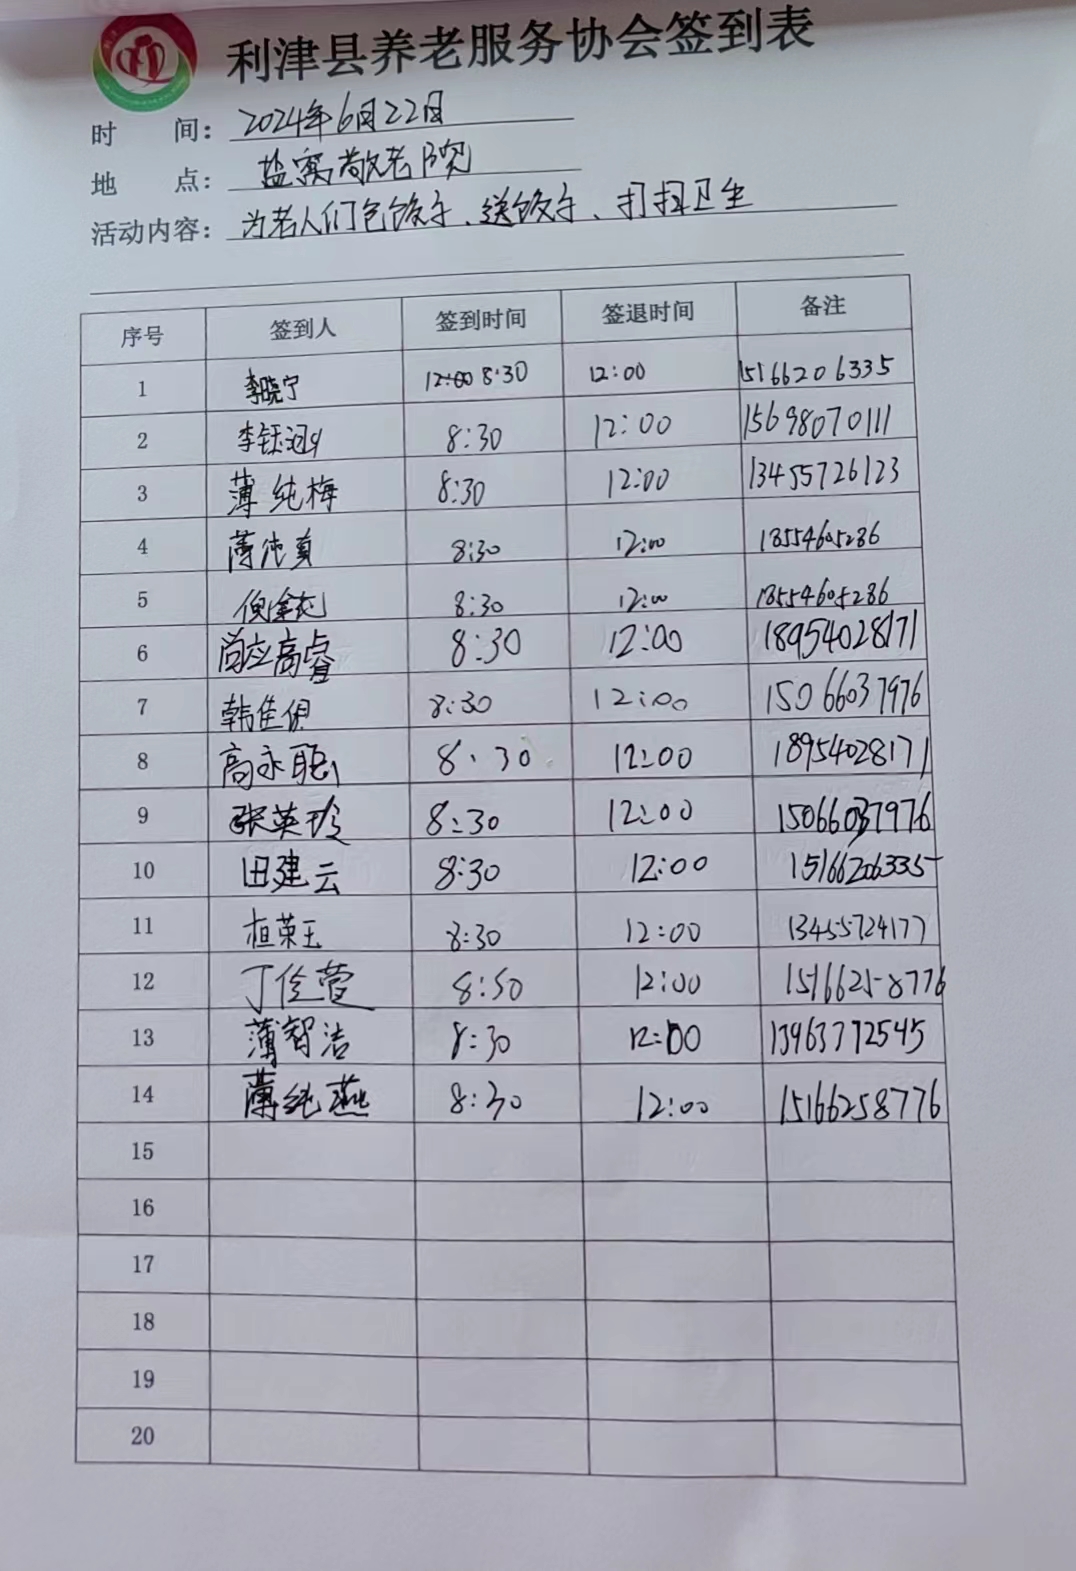 利津县养老服务协会签到表
时 间：2024年6月22日
地 点：盐窝敬老院
活动内容：为老人们包饺子、送饺子、打扫卫生
序号 签到人 签到时间 签退时间 备注
1 李晓宁 12:00 8:30 12:00 15166206335
2 李钰 8:30 12:00 15698070111
3 薄纯梅 8:30 12:00 13455726123
4 薄纯真 8:30 12:00 18554605286
5 8:30 12:00 18554605286
6 尚应高睿 8:30 12:00 18954028171
7 韩佳俱 8:30 12:00 15066037976
8 高永聪 8:30 12:00 18954028171
9 张英珍 8:30 12:00 15066037976
10 田建云 8:30 12:00 15166206335
11 桓荣玉 8:30 12:00 13455724177
12 丁佺萱 8:50 12:00 15166258776
13 薄智洁 8:30 12:00 13963772545
14 薄纯燕 8:30 12:00 15166258776
15
16
17
18
19
20